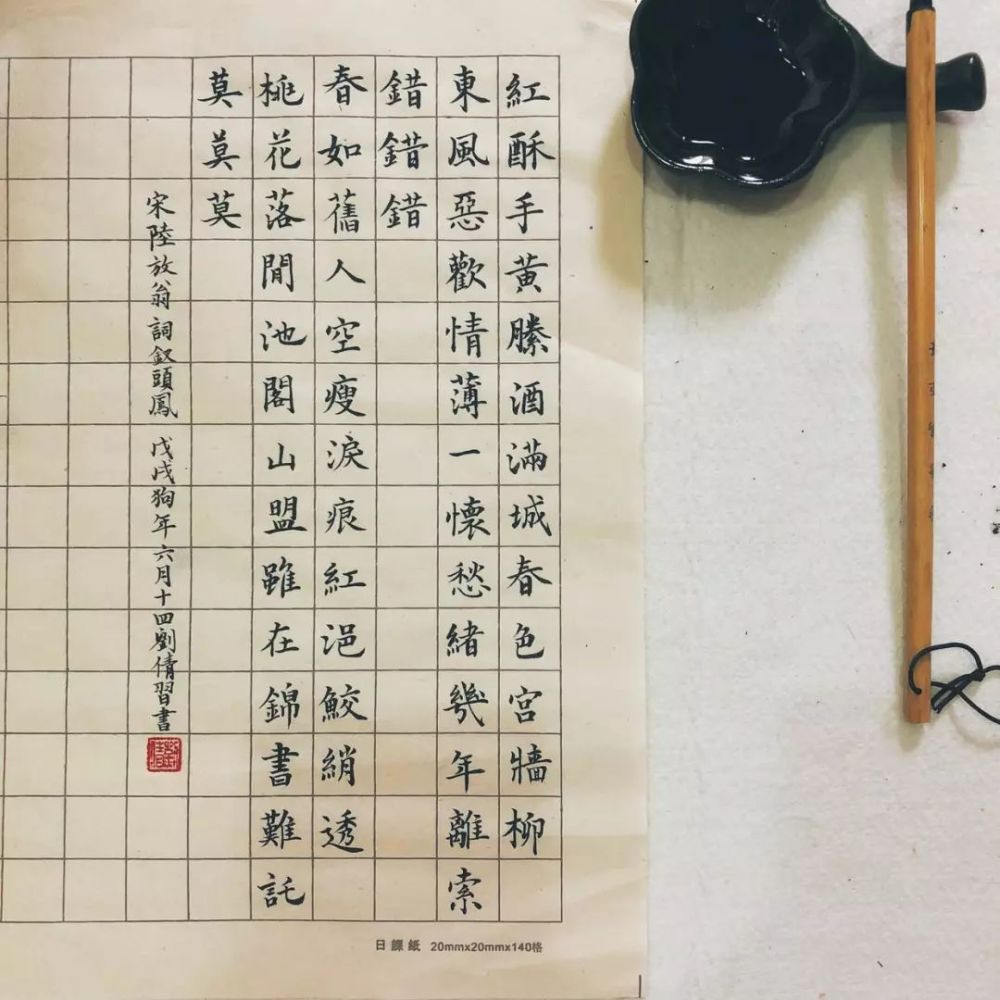 紅酥手黃縢酒滿城春色宮牆柳
東風惡歡情薄一懷愁緒幾年離索
錯錯錯
春如舊人空瘦淚痕紅浥鮫綃透
桃花落閒池閣山盟雖在錦書難託
莫莫莫
宋陸放翁詞釵頭鳳 戊戌狗年六月十四劉倩習書
日課紙 20mmx20mmx140格